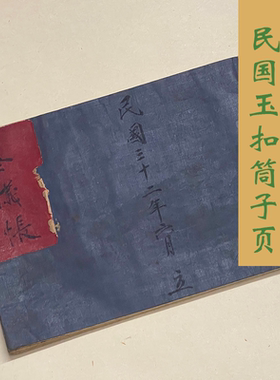 民国玉扣筒子页
民國三十二年六月 立
帳